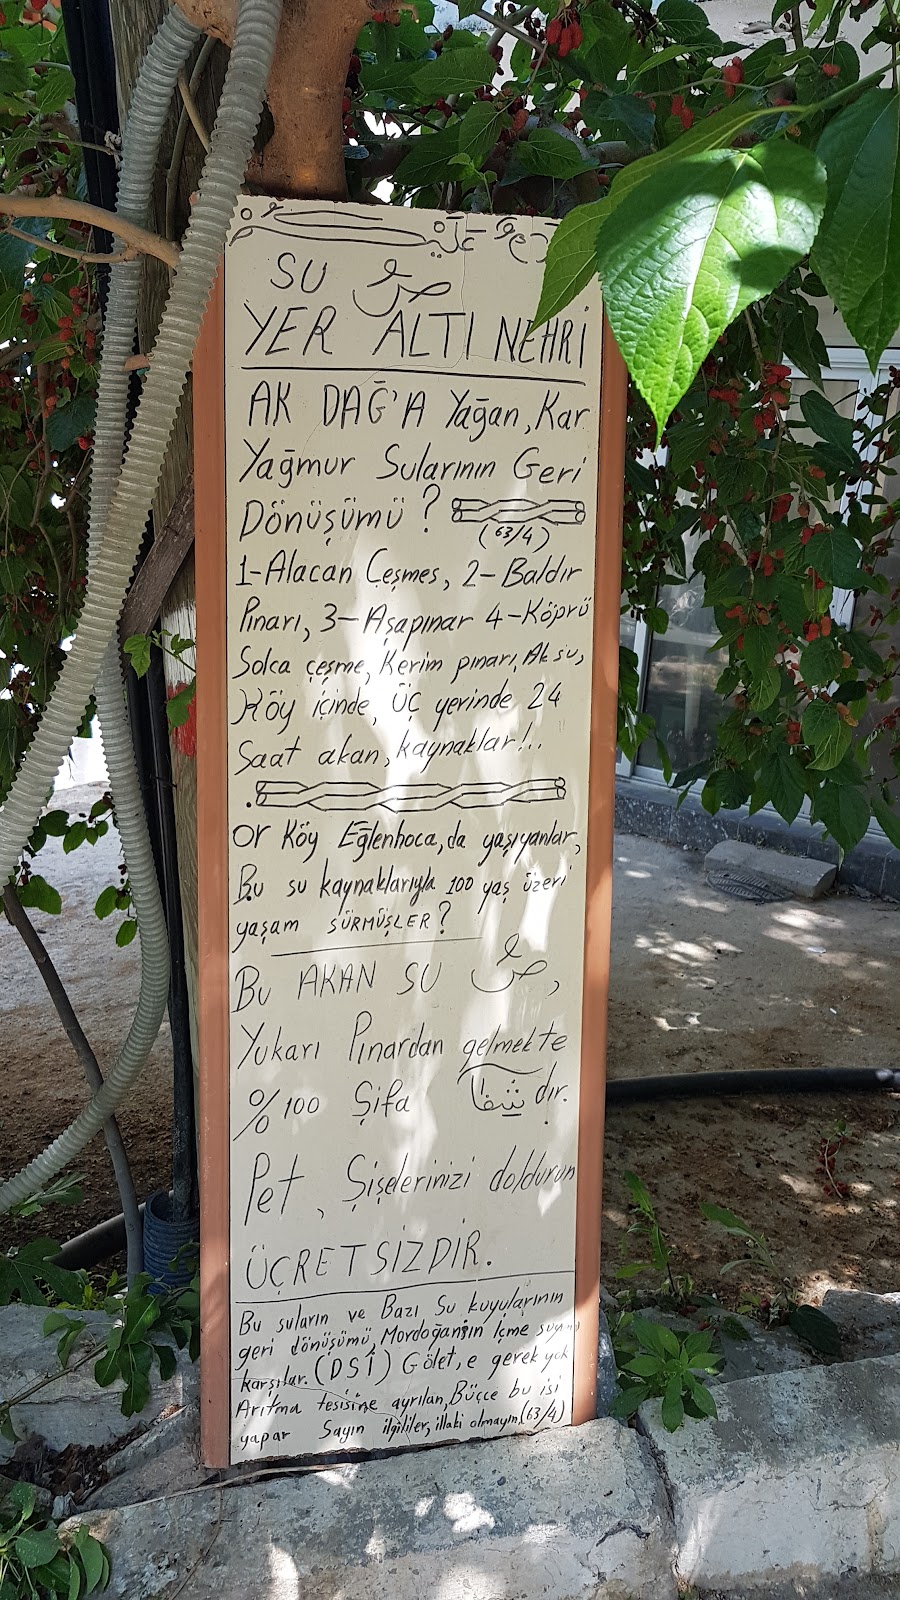 SU
YER ALTI NEHRİ
AK DAĞ'A Yağan, Kar
Yağmur Sularının Geri
Dönüşümü ?
(63/4)
1-Alacan Çeşmes, 2-Baldır
Pınarı, 3-Aşapınar 4-Köprü
Solca çeşme, Kerim pınarı, Ak su,
Köy içinde, ÜÇ yerinde 24
Saat akan, kaynaklar!..
or Köy Eğlenhoca, da yaşıyanlar,
Bu su kaynaklarıyla 100 yaş üzeri
yaşam SÜRMÜŞLER?
Bu AKAN SU ,
Yukarı Pınardan gelmekte
%100 Şifa شفا dır.
Pet, Şişelerinizi doldurun
ÜCRETSİZDİR.
Bu suların ve Bazı Su kuyularının
geri dönüşümü, Mordoğanın İçme suyunu
karşılar. (DSİ) Gölet, e gerek yok
Arıtma tesisine ayrılan, Büçce bu işi
yapar Sayın ilgililer, illaki olmayın, (63/4)